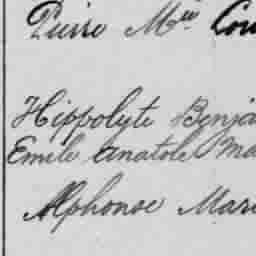 Pierre Mie Cou
Hippolyte Benja
Emile Anatole Ma
Alphonse Mari